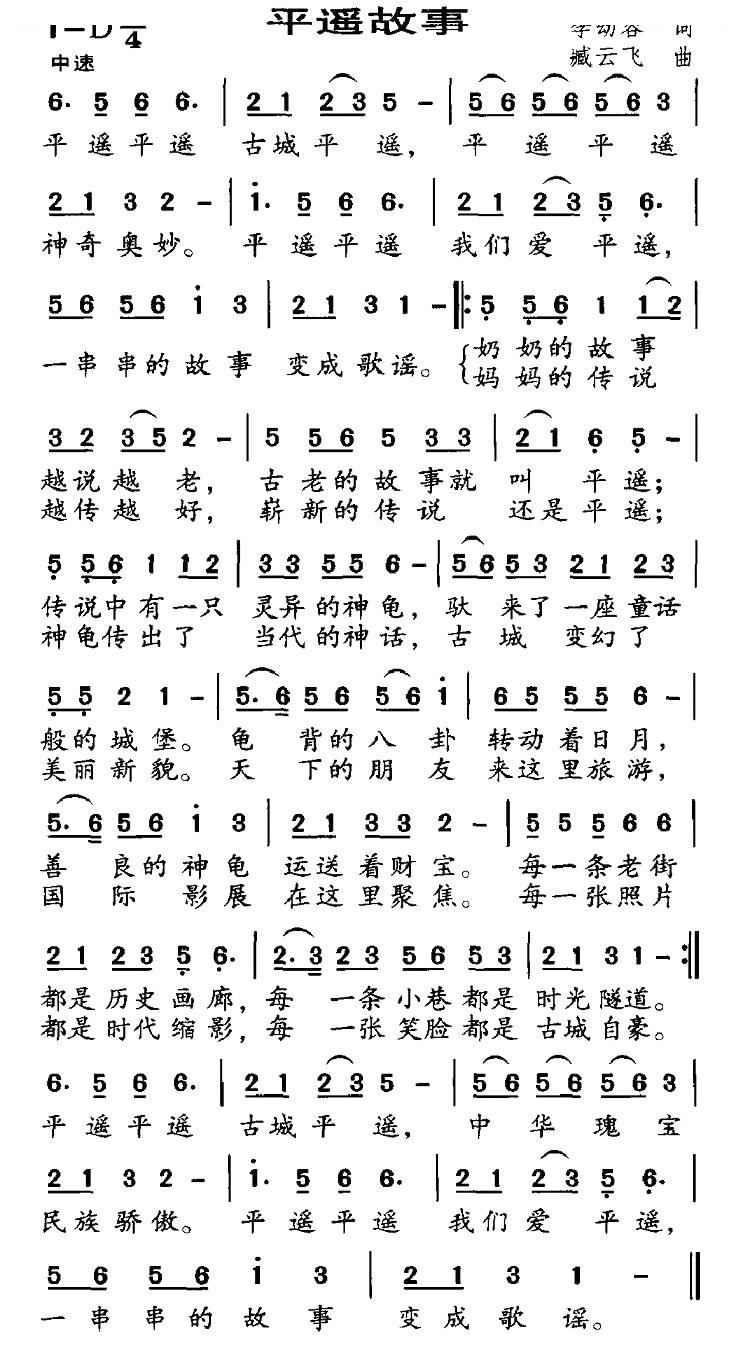 平遥故事
1=D 4/4
李幼容 词
中速
臧云飞 曲
6. 5 6 6. | 2 1 2 3 5 – | 5 6 5 6 5 6 3 |
平遥平遥 古城平遥，平遥平遥
2 1 3 2 – | i. 5 6 6. | 2 1 2 3 5 6. |
神奇奥妙。平遥平遥 我们爱平遥，
5 6 5 6 i 3 | 2 1 3 1 – ‖: 5 5 6 1 1 2 |
一串串的故事 变成歌谣。{奶奶的故事
妈妈的传说
3 2 3 5 2 – | 5 5 6 5 3 3 | 2 1 6 5 – |
越说越老，古老的故事就叫平遥；
越传越好，崭新的传说 还是平遥；
5 5 6 1 1 2 | 3 3 5 5 6 – | 5 6 5 3 2 1 2 3 |
传说中有一只 灵异的神龟，驮来了一座童话
神龟传出了 当代的神话，古城变幻了
5 5 2 1 – | 5. 6 5 6 5 6 i | 6 5 5 5 6 – |
般的城堡。龟背的八卦 转动着日月，
美丽新貌。天下的朋友 来这里旅游，
5. 6 5 6 i 3 | 2 1 3 3 2 – | 5 5 5 6 6 |
善良的神龟 运送着财宝。每一条老街
国际影展 在这里聚焦。每一张照片
2 1 2 3 5 6. | 2. 3 2 3 5 6 5 3 | 2 1 3 1 – :‖
都是历史画廊，每一条小巷都是 时光隧道。
都是时代缩影，每一张笑脸都是 古城自豪。
6. 5 6 6. | 2 1 2 3 5 – | 5 6 5 6 5 6 3 |
平遥平遥 古城平遥，中华瑰宝
2 1 3 2 – | i. 5 6 6. | 2 1 2 3 5 6. |
民族骄傲。平遥平遥 我们爱平遥，
5 6 5 6 i 3 | 2 1 3 1 – ‖
一串串的故事 变成歌谣。